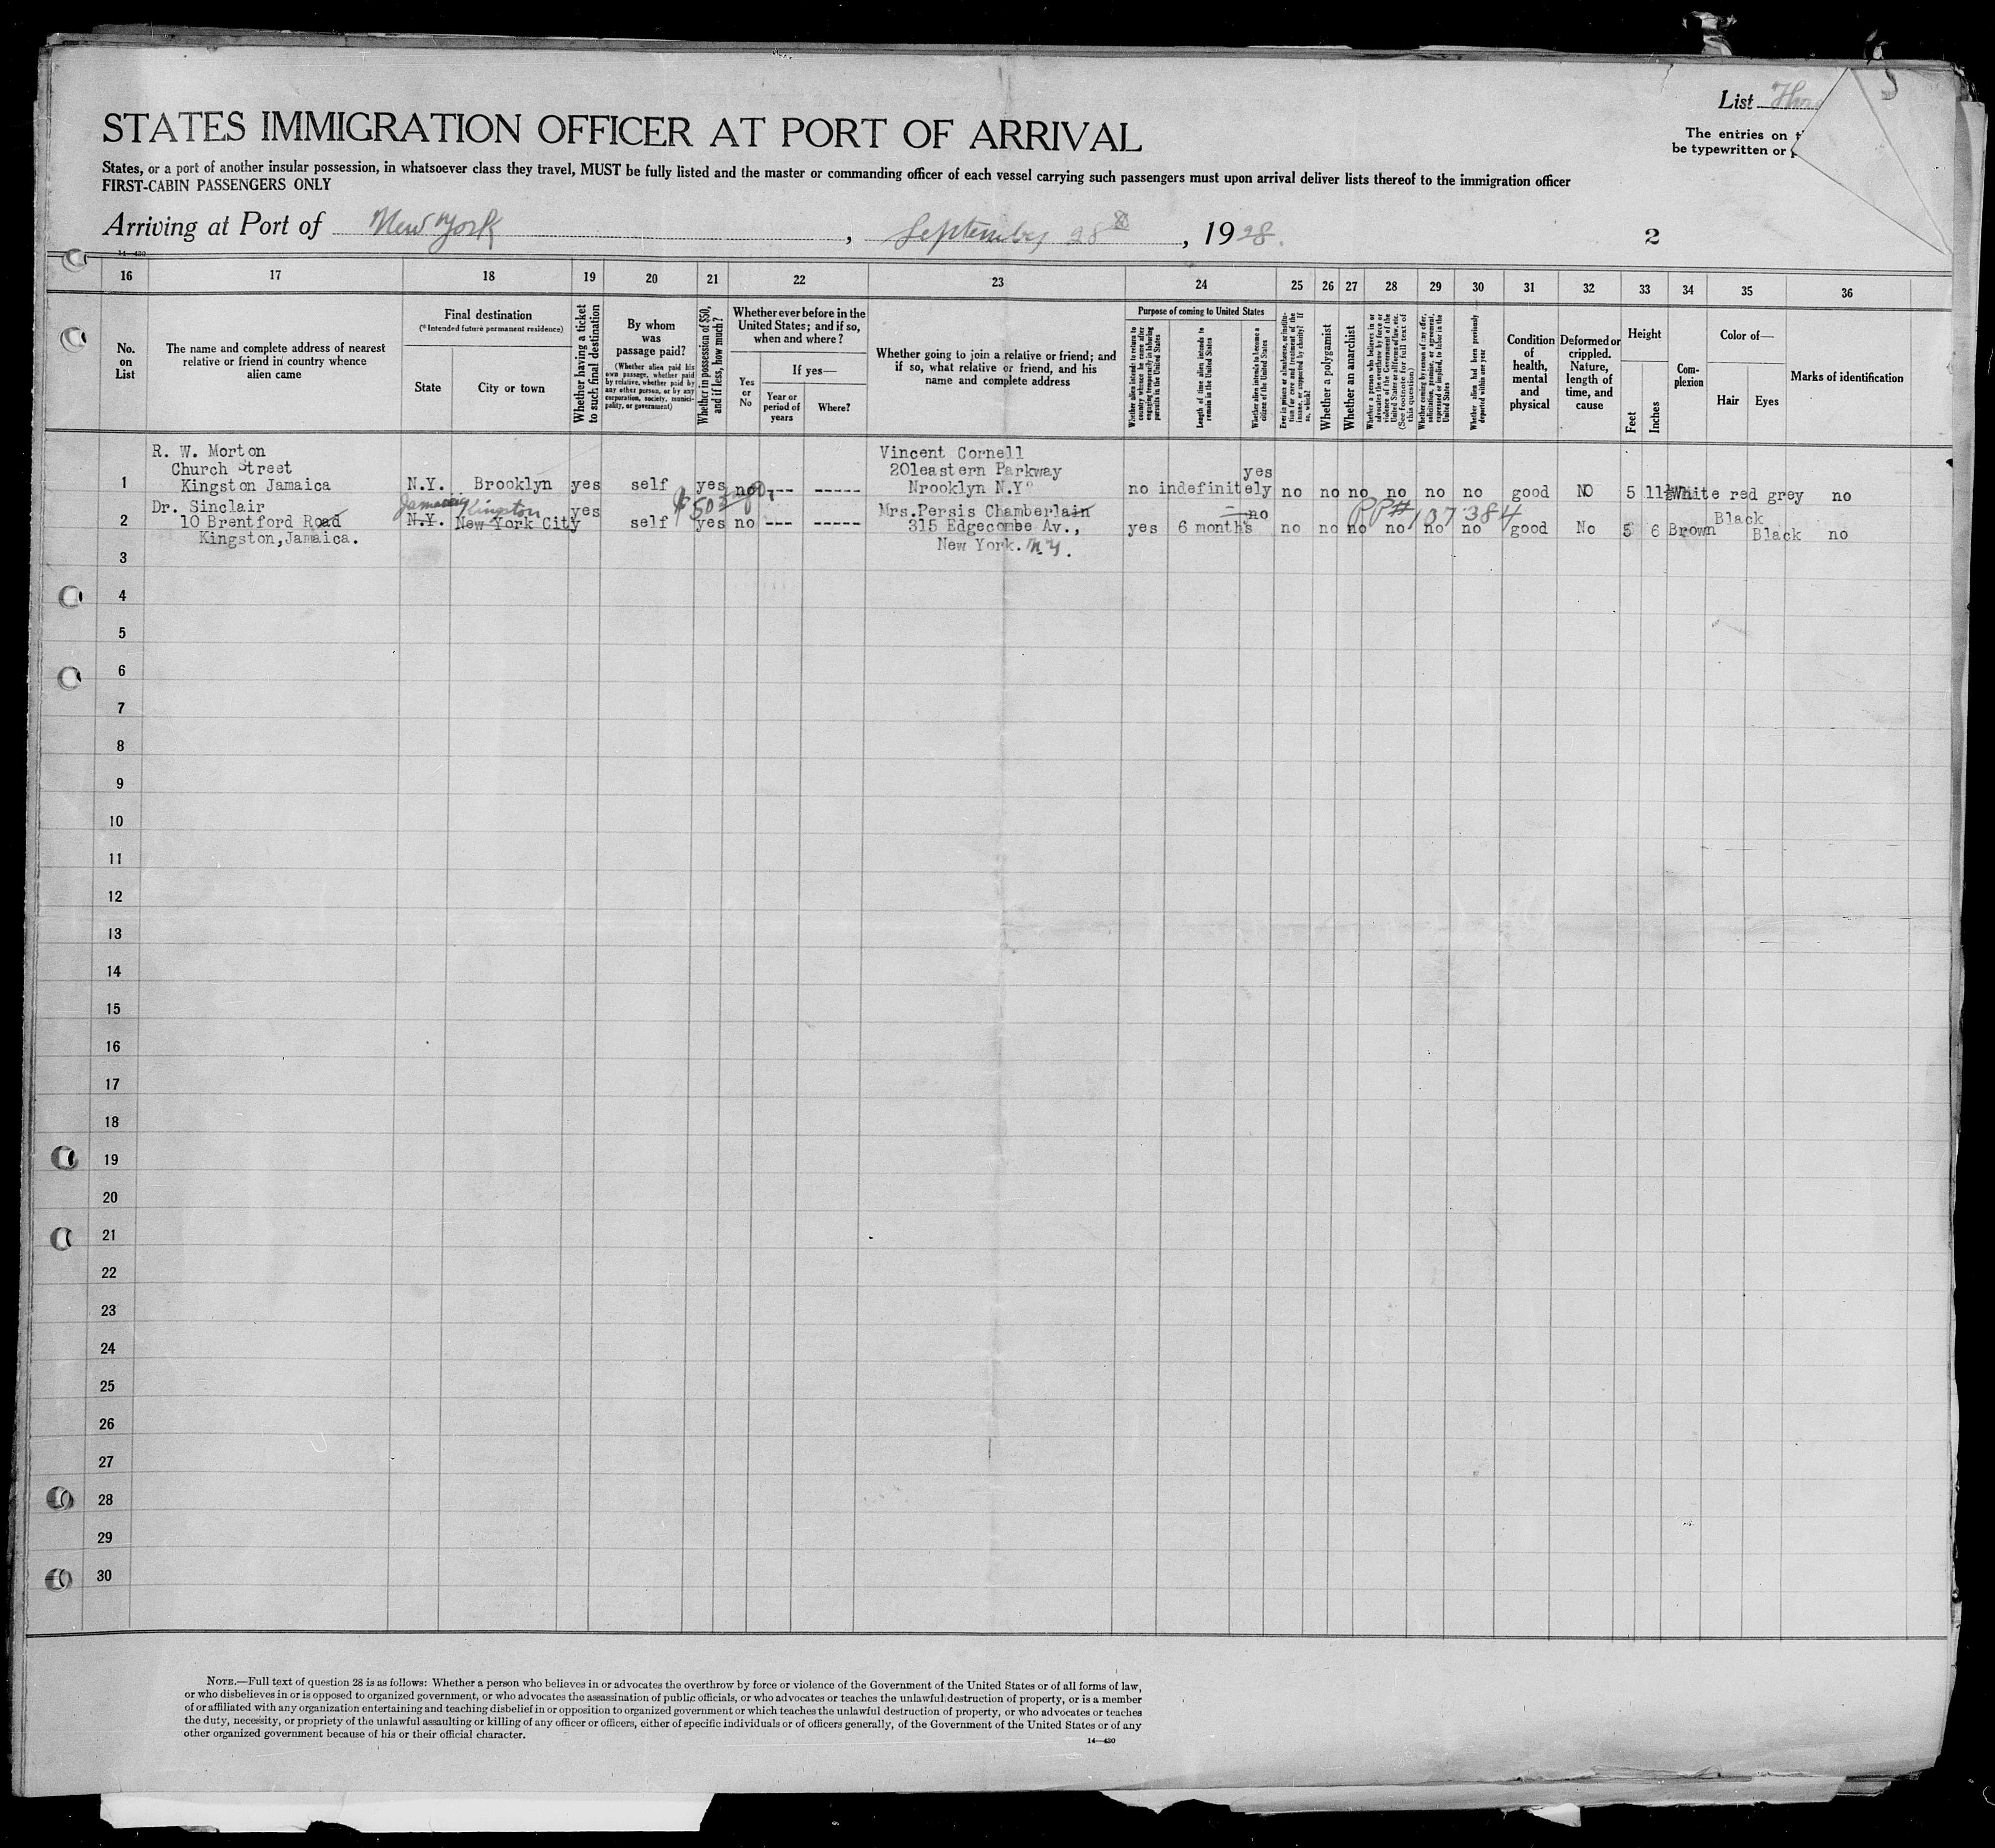 List
STATES IMMIGRATION OFFICER AT PORT OF ARRIVAL
The entries on
be typewritten or
States, or a port of another insular possession, in whatsoever class they travel, MUST be fully listed and the master or commanding officer of each vessel carrying such passengers must upon arrival deliver lists thereof to the immigration officer
FIRST-CABIN PASSENGERS ONLY
Arriving at Port of New York, September 28, 1928.
2
14—430
16 17 18 19 20 21 22 23 24 25 26 27 28 29 30 31 32 33 34 35 36
No. on List
The name and complete address of nearest relative or friend in country whence alien came
Final destination
(*Intended future permanent residence)
State
City or town
Whether having a ticket to such final destination
By whom was passage paid?
(Whether alien paid his own passage, whether paid by relative, whether paid by any other person, or by any corporation, society, municipality, or government)
Whether in possession of $50, and if less, how much?
Whether ever before in the United States; and if so, when and where?
Yes or No
If yes—
Year or period of years
Where?
Whether going to join a relative or friend; and if so, what relative or friend, and his name and complete address
Purpose of coming to United States
Whether alien intends to return to country whence he came after engaging temporarily in laboring pursuits in the United States
Length of time alien intends to remain in the United States
Whether alien intends to become a citizen of the United States
Ever in prison or almshouse, or institution for care and treatment of the insane, or supported by charity? If so, which?
Whether a polygamist
Whether an anarchist
Whether a person who believes in or advocates the overthrow by force or violence of the Government of the United States or all forms of law, etc. (See footnote for full text of this question)
Whether coming by reason of any offer, solicitation, promise, or agreement, expressed or implied, to labor in the United States
Whether alien had been previously deported within one year
Condition of health, mental and physical
Deformed or crippled. Nature, length of time, and cause
Height
Feet
Inches
Complexion
Color of—
Hair
Eyes
Marks of identification
R. W. Morton Vincent Cornell
Church Street 201eastern Parkway yes
1 Kingston Jamaica N.Y. Brooklyn yes self yes no --- ----- Nrooklyn N.Y. no indefinitely no no no no no no good NO 5 11½ White red grey no
Jamaica Kingston $50 PP# 137384
Dr. Sinclair yes Mrs.Persis Chamberlain no Black
2 10 Brentford Road N.Y. New York City self yes no --- ----- 315 Edgecombe Av., yes 6 months no no no no no no good No 5 6 Brown Black no
Kingston,Jamaica. New York. N.Y.
3
4
5
6
7
8
9
10
11
12
13
14
15
16
17
18
19
20
21
22
23
24
25
26
27
28
29
30
NOTE.—Full text of question 28 is as follows: Whether a person who believes in or advocates the overthrow by force or violence of the Government of the United States or of all forms of law,
or who disbelieves in or is opposed to organized government, or who advocates the assassination of public officials, or who advocates or teaches the unlawful destruction of property, or is a member
of or affiliated with any organization entertaining and teaching disbelief in or opposition to organized government or which teaches the unlawful destruction of property, or who advocates or teaches
the duty, necessity, or propriety of the unlawful assaulting or killing of any officer or officers, either of specific individuals or of officers generally, of the Government of the United States or of any
other organized government because of his or their official character.
14—430